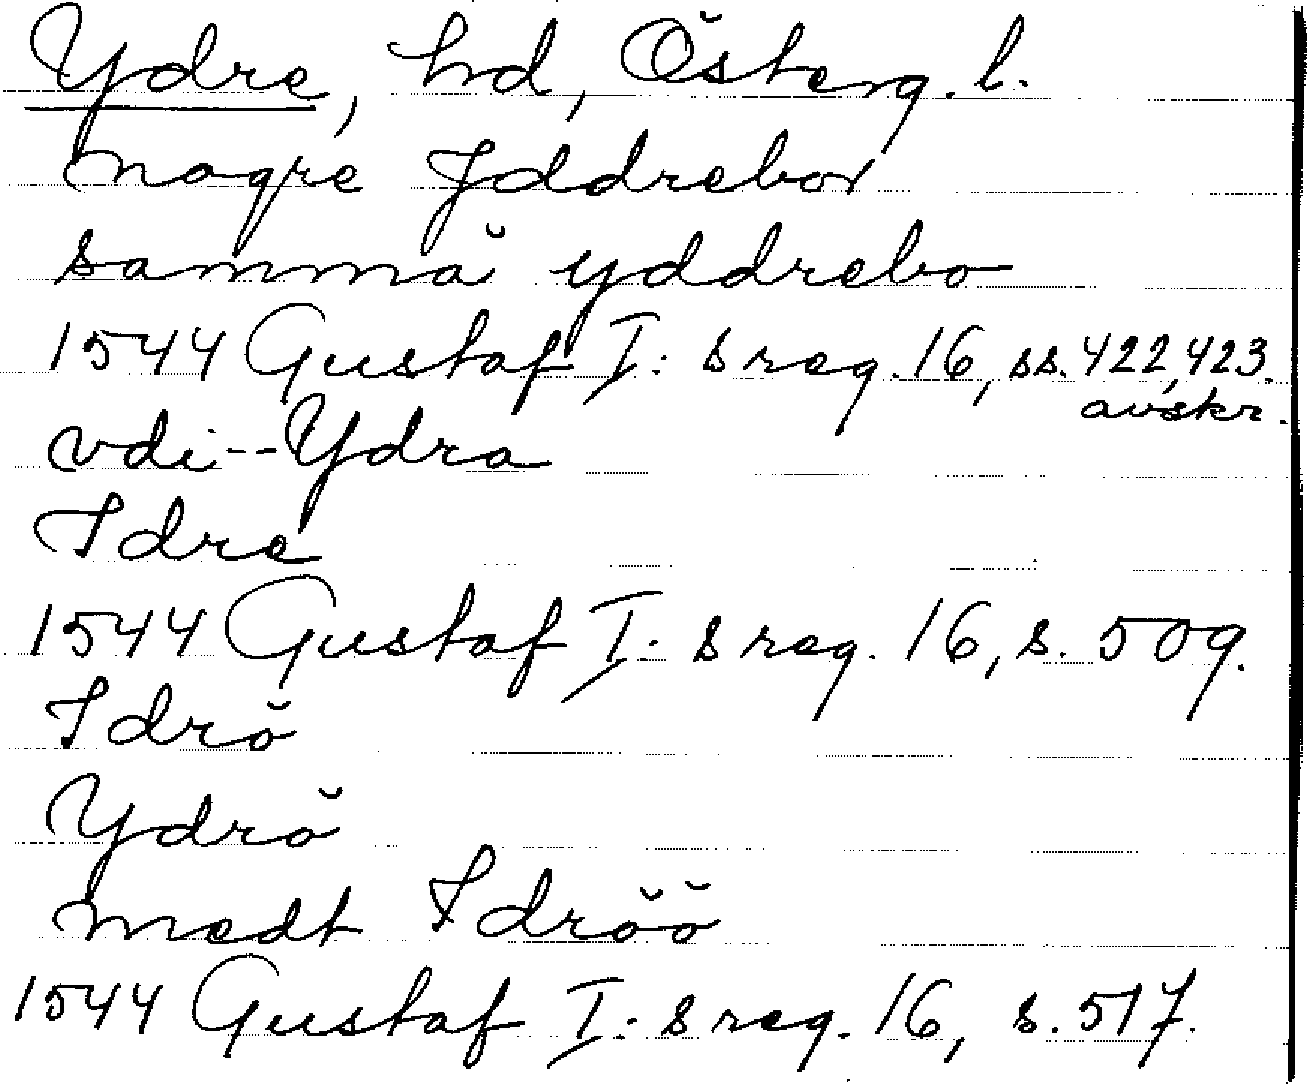 Ydre, hd, Österg. l.
nagre Jddrebor
sammä yddrebo
1544 Gustaf I:s reg. 16, ss. 422, 423.
avskr.
vdi -- Ydra
Idre
1544 Gustaf I:s reg. 16, s. 509.
Idrö
Ydrö
medt Idröö
1544 Gustaf I:s reg. 16, s. 517.